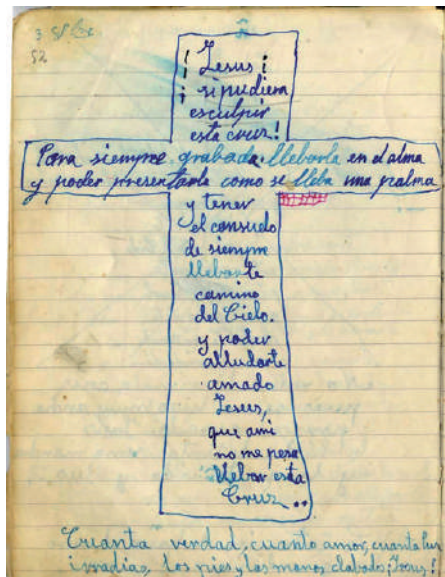 52
¡ Jesus ¡
¡ si pudiera
esculpir
esta cruz!
Para siempre grabada. lleborla en el alma
y poder presentarla como se lleba una palma
y tener
el consuelo
de siempre
llebarte
camino
del Cielo.
y poder
alludarte
amado
Jesus,
que ami
no me pesa
llebar esta
Cruz..
Cuanta verdad, cuanto amor, cuanta luz
irradias, los pies y las manos clabados ¡Jesus!